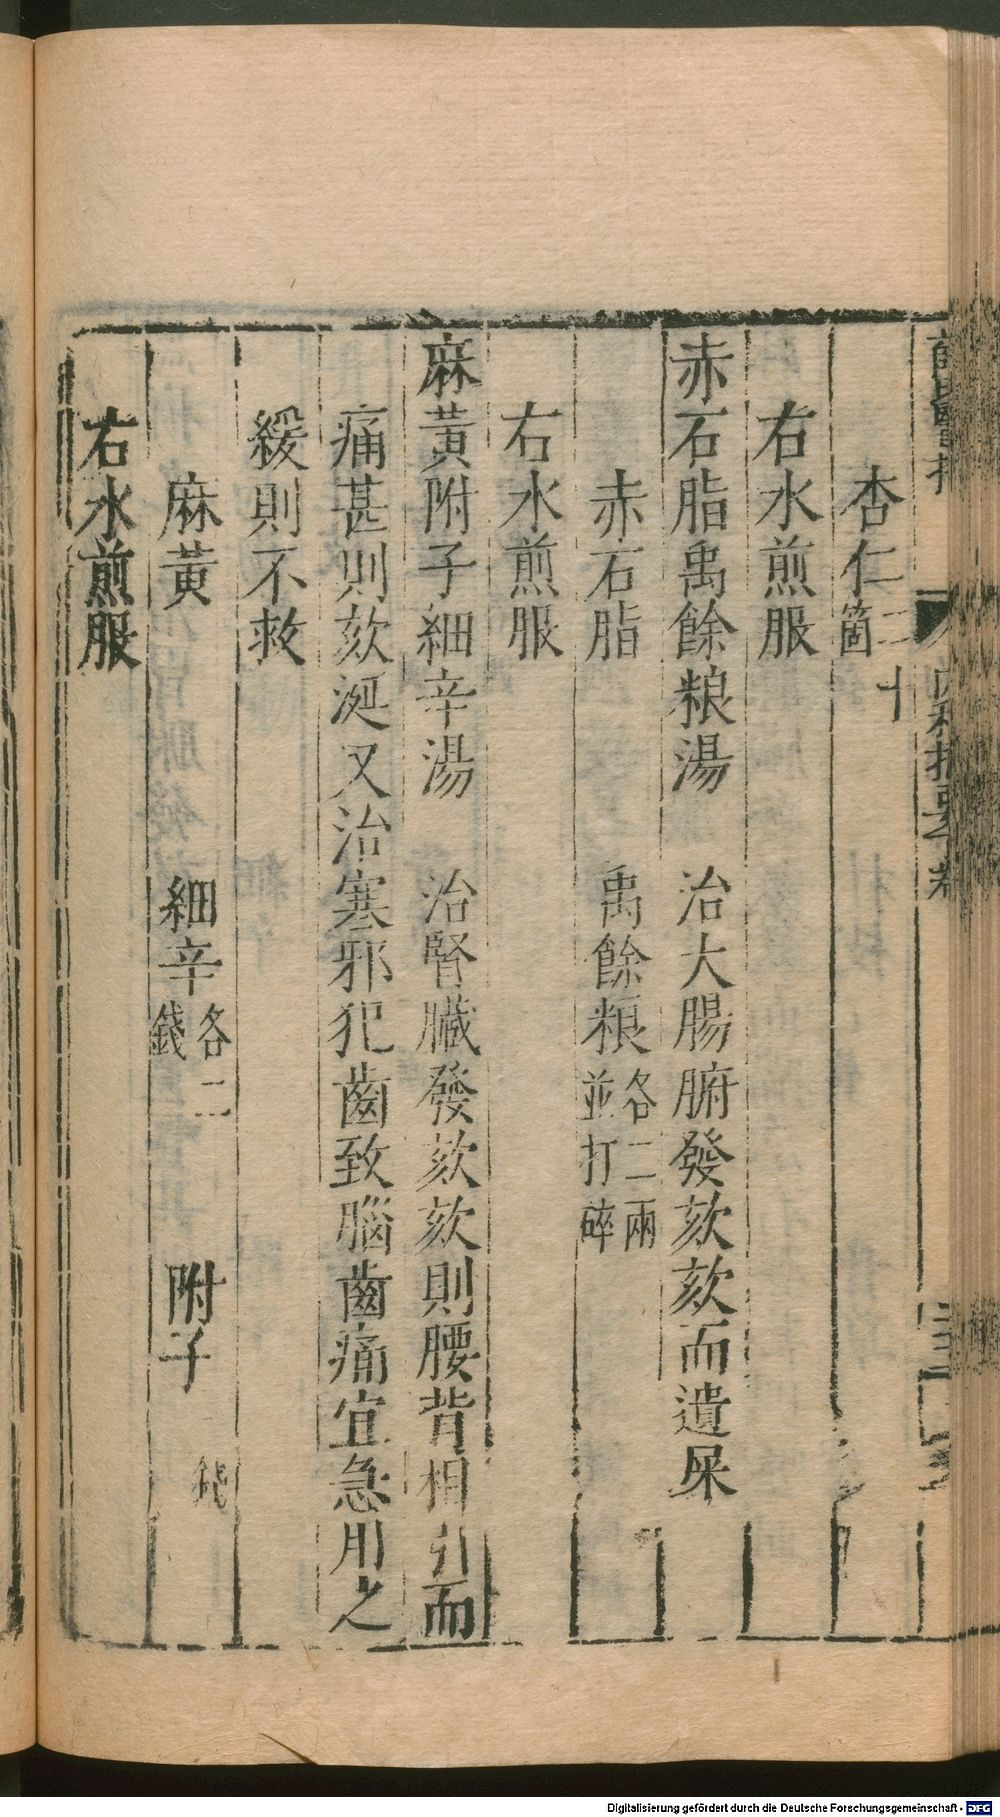 杏仁二十箇
右水煎服
赤石脂禹餘粮湯　治大腸腑發欬欬而遺屎
赤石脂　禹餘粮各二兩並打碎
右水煎服
麻黃附子細辛湯　治腎臟發欬欬則腰背相引而
痛甚則欬涎又治寒邪犯齒致腦齒痛宜急用之
緩則不救
麻黃　細辛各二錢　附子　錢
右水煎服
Digitalisierung gefördert durch die Deutsche Forschungsgemeinschaft - DFG